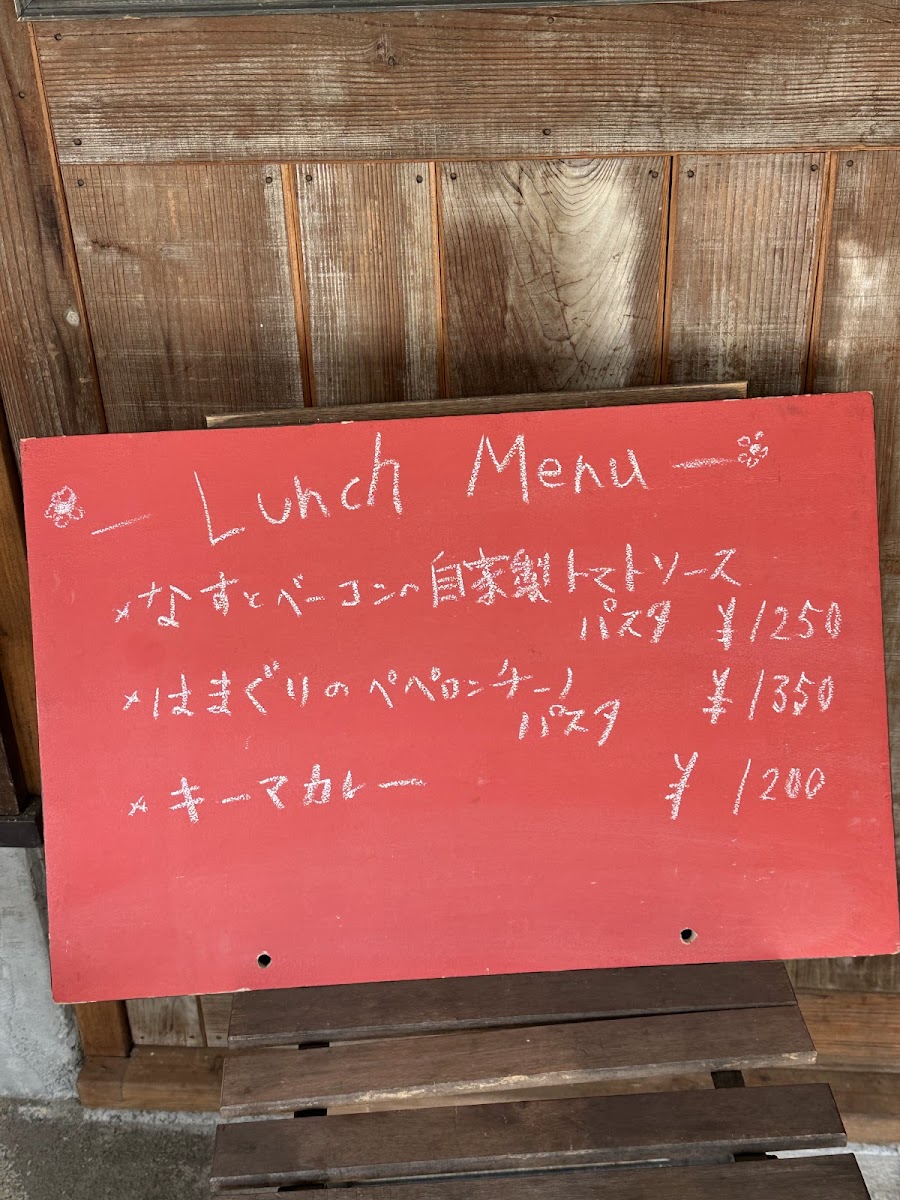 Lunch Menu
×なすとベーコンの自家製トマトソース
パスタ ¥1250
×はまぐりのペペロンチーノ
パスタ ¥1350
×キーマカレー ¥1200